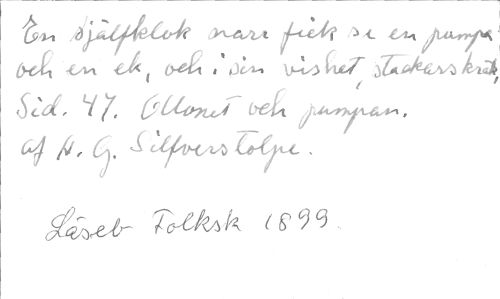 En självklok narr fick se en pumpa
och en ek, och i sin vishet, stackars kräk,
Sid. 47. Ollonet och pumpan.
af H. G. Silfverstolpe.
Läseb Folksk 1899.